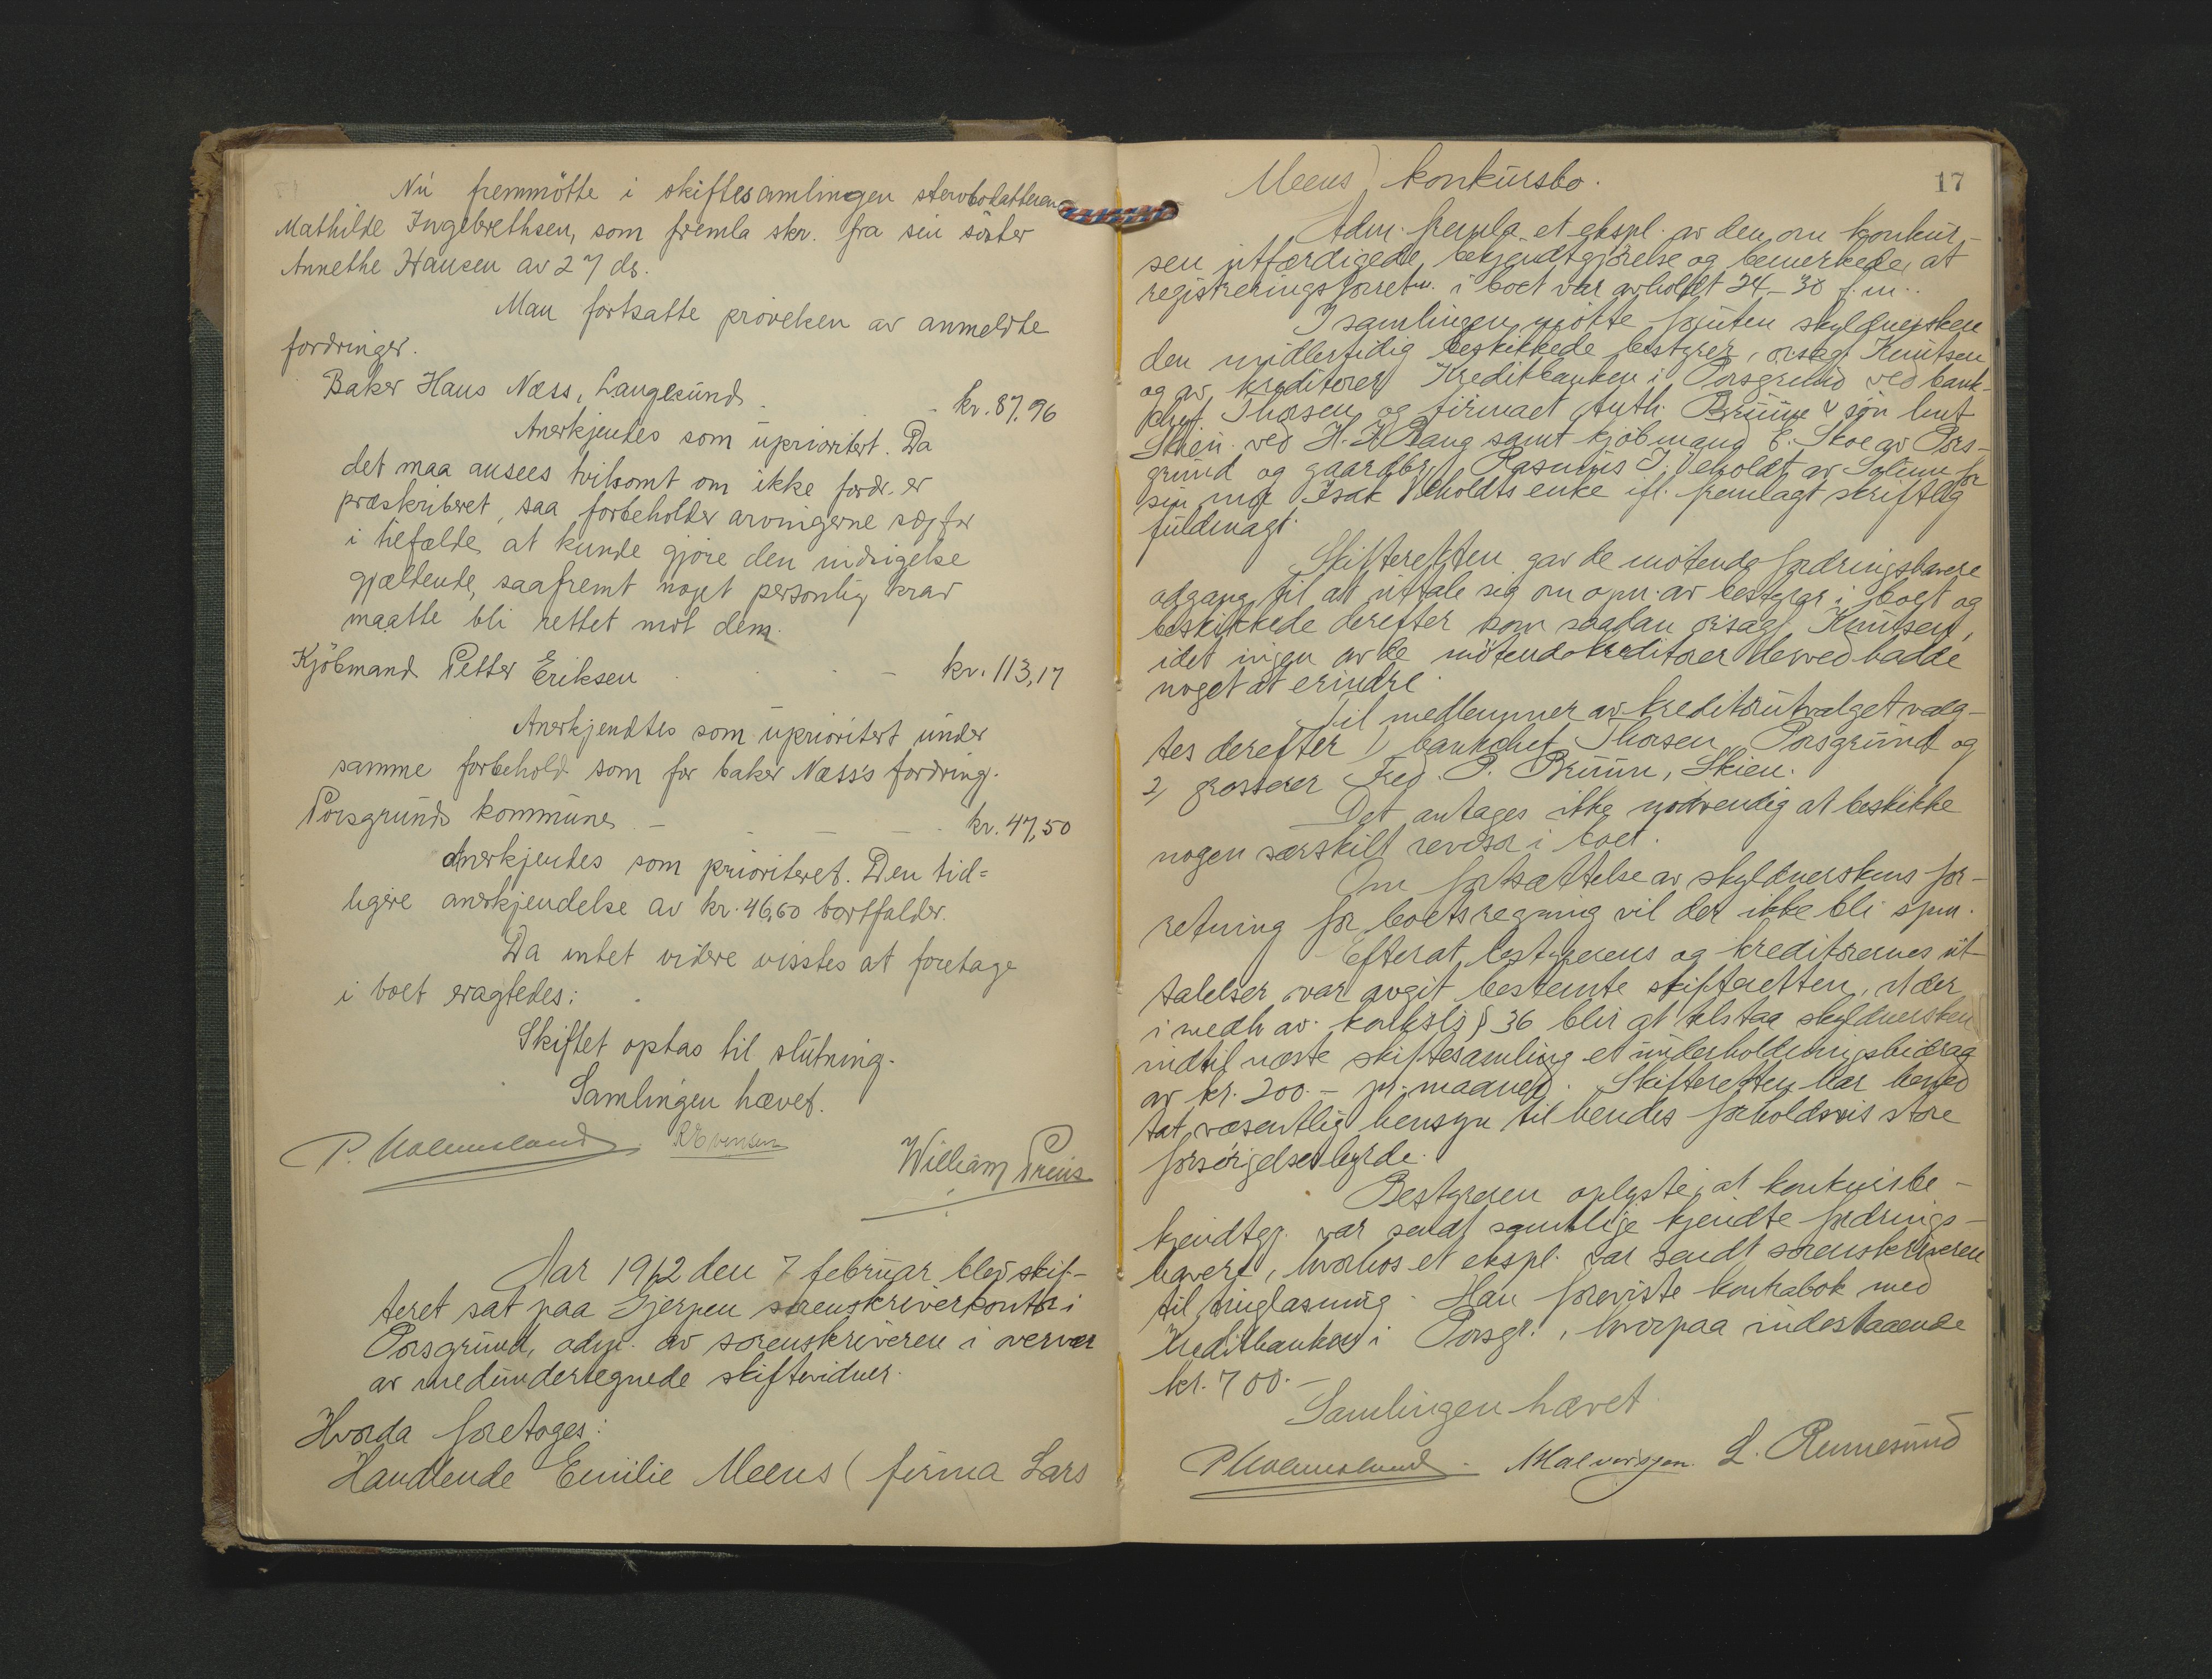 Nu fremmötte i skiftesamlingen stervbodatteren
Mathilde Ingebrethsen, som fremla skr. fra sin söster
Annethe Hansen av 27 ds.
Man fortsatte prövelsen av anmeldte
fordringer.
Baker Hans Næss, Langesund - kr. 87.96
Anerkjendes som uprioritert. Da
det maa ansees tvilsomt om ikke fordr. er
præskriberet, saa forbeholder arvingerne sig for
i tilfælde at kunde gjöre den indsigelse
gjældende, saafremt noget personlig krav
maatte bli rettet mot dem.
Kjöbmand Petter Eriksen - kr. 113,17
Anerkjendtes som uprioritert under
samme forbehold som for baker Næss's fordring.
Porsgrunds kommune - - - kr. 47,50
Anerkjendes som prioriteret. Den tid=
ligere anerkjendelse av kr. 46,60 bortfalder.
Da intet videre visstes at foretage
i boet eragtedes:
Skiftet optas til slutning.
Samlingen hævet.
P. Holmesland. R Evensen William Preus
Aar 1912 den 7 februar blev skif-
teret sat paa Gjerpen sorenskriverkontor i
Porsgrund, adm. av sorenskriveren i overvær
av medundertegnede skiftevidner.
Hvorda foretoges:
Handlende Emilie Meens (firma Lars
17
Meens) konkursbo.
Adm. fremla et ekspl. av den om konkur-
sen utfærdigede bekjendtgjörelse og bemerkede, at
registreringsforretn. i boet var avholdt 24-30 f.m..
I samlingen mötte foruten skyldnersken
den midlertidig beskikkede bestyrer, orsagf. Knutsen
og av kreditorer Kreditbanken i Porsgrund ved bank-
chef Thorsen og firmaet Anth. Bruun & sön
Skien ved H. H. Bang samt kjöbmand E. Skoe av Pors-
grund og gaardbr. Rasmus I. Veholdt av Solum for
sin mor Isak Veholdts enke ifl. fremlagt skriftlig
fuldmagt.
Skifteretten gav de mötende fordringshavere
adgang til at uttale seg om opn. av bestyrer i boet og
beskikkede derefter som saadan orsagf. Knutsen,
idet ingen av de mötende kreditorer derved hadde
noget at erindre.
Til medlemmer av kreditorutvalget valg-
tes derefter 1) bankchef Thorsen, Porsgrund og
2) grosserer Fred. P. Bruun, Skien.
Det antages ikke nödvendig at beskikke
nogen særskilt revisor i boet.
Om fortsættelse av skyldnerskens for-
retning for boets regning vil der ikke bli spm.
Efterat bestyrerens og kreditorernes ut-
talelser var avgit bestemte skifteretten, at der
i medh. av konkursl. § 36 blir at tilstaa skyldnersken
indtil næste skiftesamling et underholdningsbidrag
av kr. 200.- pr. maaned. Skifteretten har herved
tat væsentlig hensyn til hendes forholdsvis store
forsörgelsesbyrde.
Bestyreren oplyste, at konkursbe-
kjendtgj. var sendt samtlige kjendte fordrings-
havere, hvorhos et ekspl. var sendt sorenskriveren
til tinglæsning. Han foreviste kontrabok med
Kreditbanken i Porsgr., hvorpaa indestaaende
kr. 700.-
Samlingen hævet
P. Holmesland. N Halvorsen. L. Rennesund